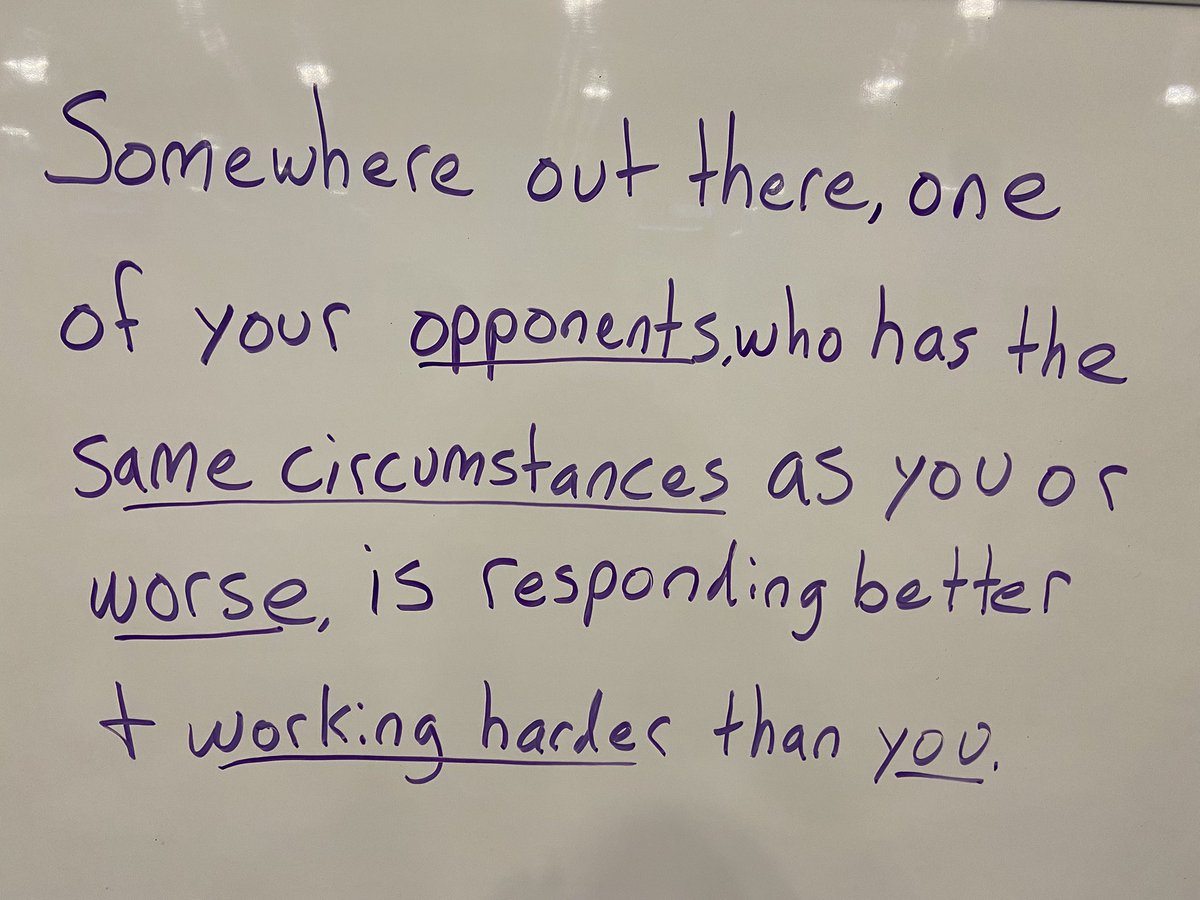 Somewhere out there, one
of your opponents, who has the
same circumstances as you or
worse, is responding better
+ working harder than you.